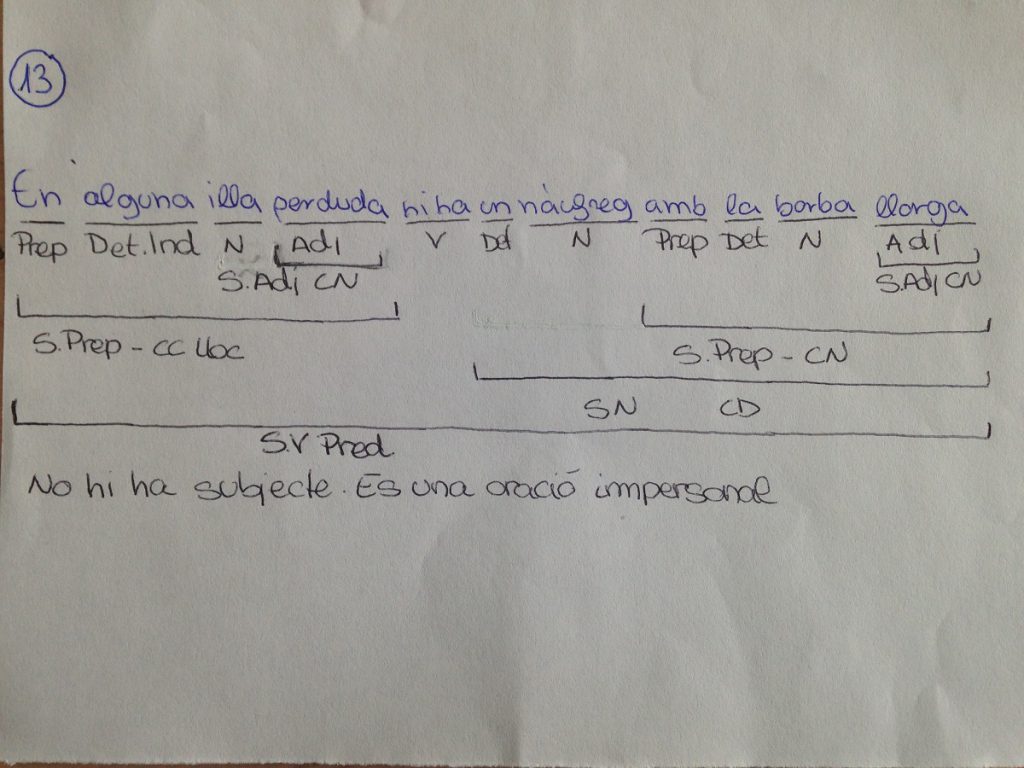 13
En alguna illa perduda hi ha un nàufreg amb la barba llarga
Prep Det.Ind N Adj V Det N Prep Det N Adj
S.Adj CN S.Adj CN
S.Prep - CC lloc S.Prep - CN
SN CD
S.V Pred
No hi ha subjecte. És una oració impersonal